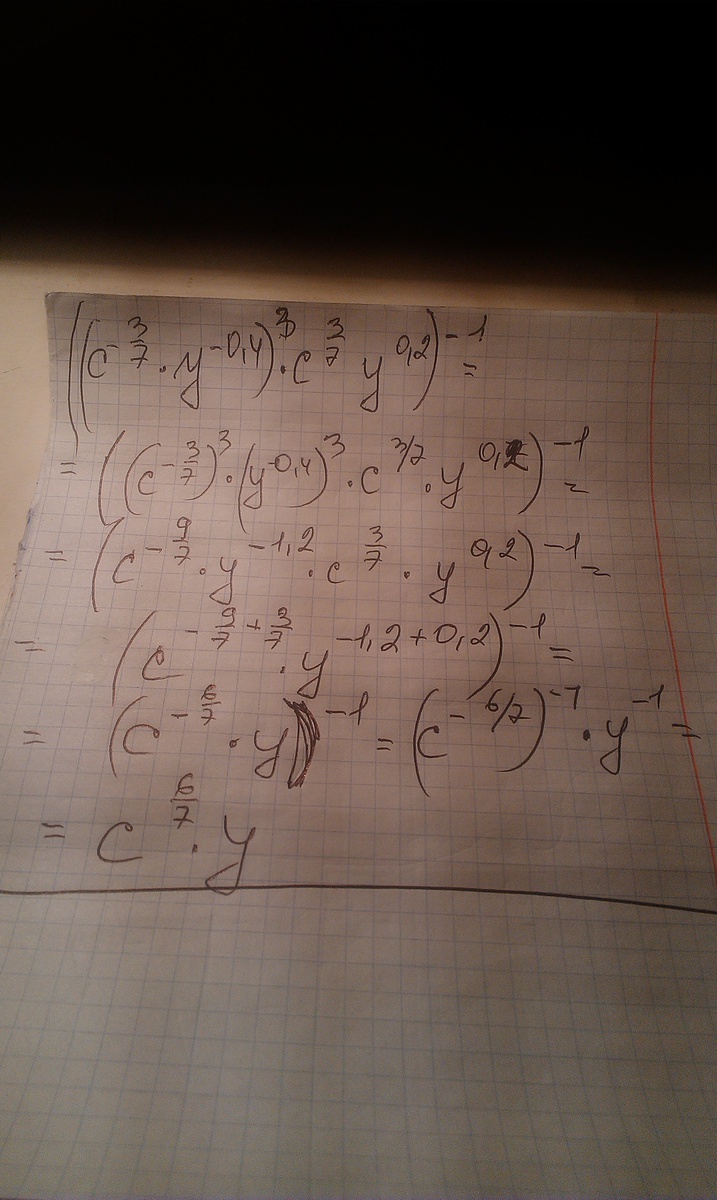 ((c^{-\frac{3}{7}} · y^{-0,4})^3 · c^{\frac{3}{7}} y^{0,2})^{-1} =
= ((c^{-\frac{3}{7}})^3 · (y^{-0,4})^3 · c^{3/7} · y^{0,2})^{-1} =
= (c^{-\frac{9}{7}} · y^{-1,2} · c^{\frac{3}{7}} · y^{0,2})^{-1} =
= (c^{-\frac{9}{7}+\frac{3}{7}} · y^{-1,2+0,2})^{-1} =
= (c^{-\frac{6}{7}} · y)^{-1} = (c^{-6/7})^{-1} · y^{-1} =
= c^{\frac{6}{7}} · y